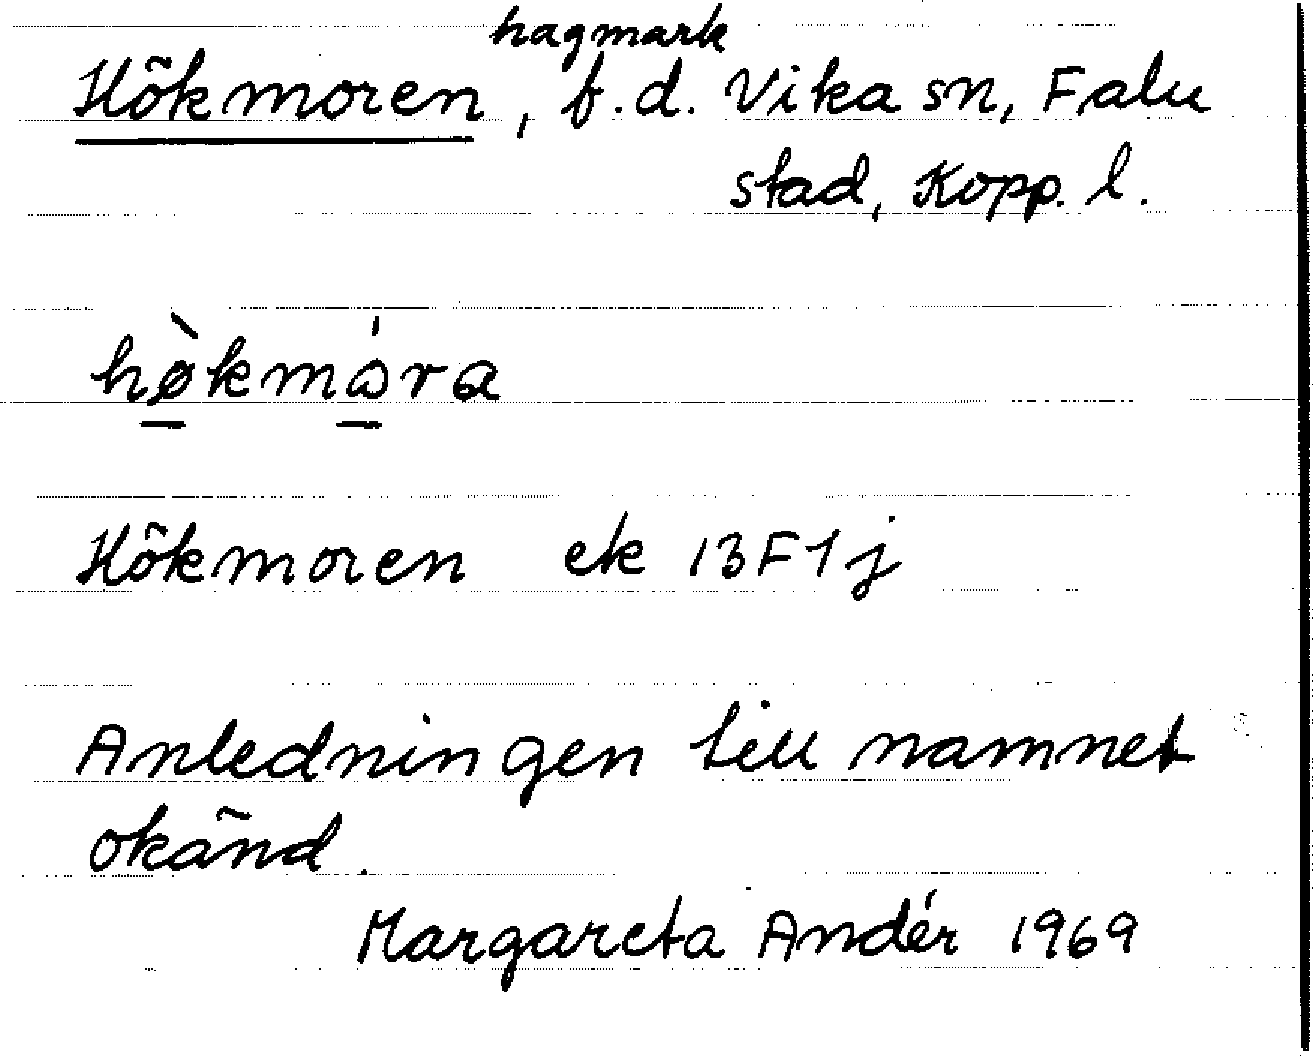 hagmark
Hökmoren, f.d. Vika sn, Falu
stad, Kopp. l.
hø̀kmɷ́ra
Hökmoren ek 13F1j
Anledningen till namnet
okänd.
Margareta Andér 1969